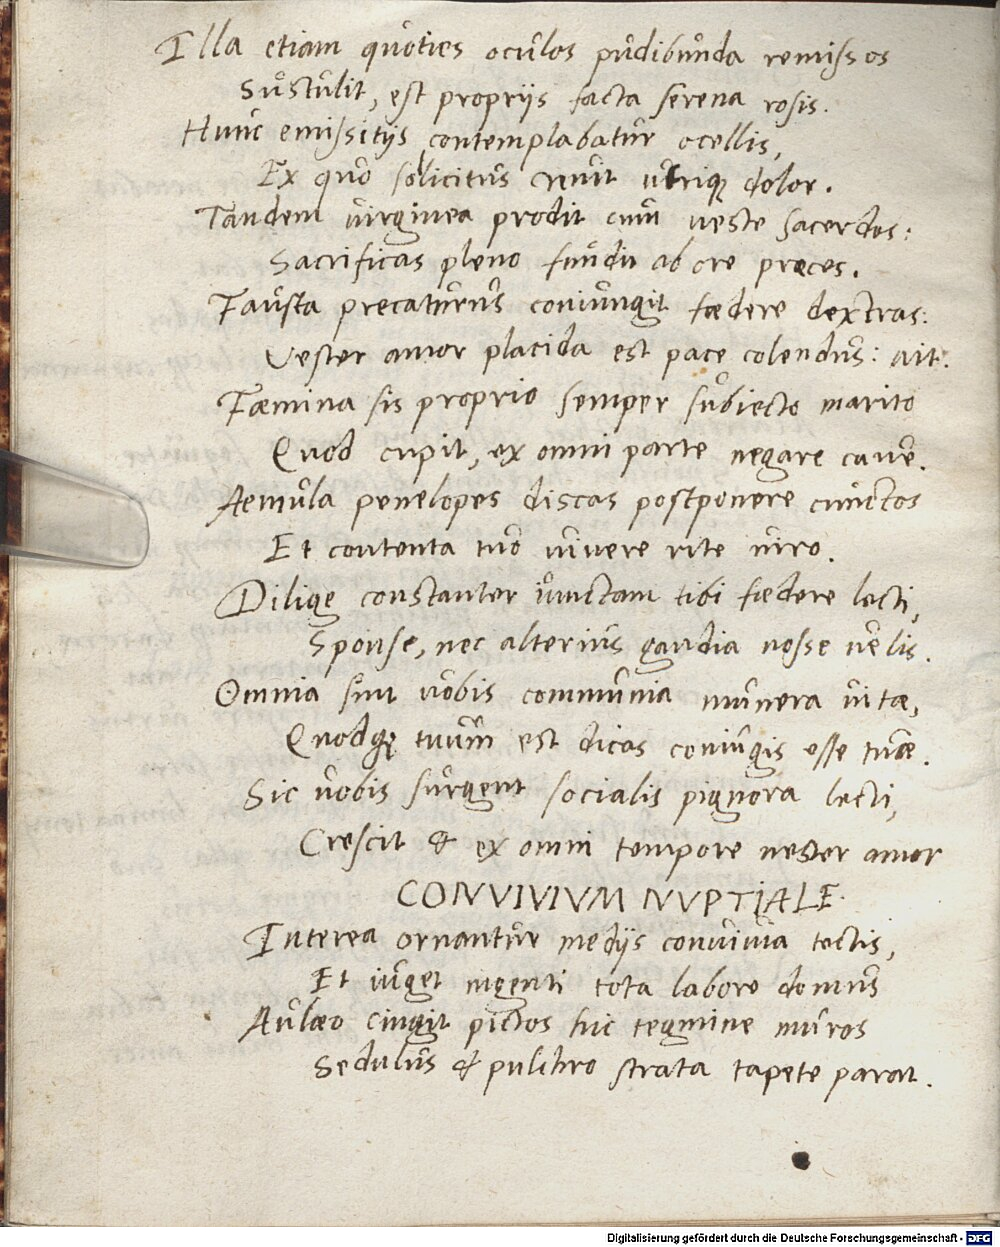 Illa etiam quoties oculos pudibunda remissos
Sustulit, est proprijs facta serena rosis.
Hunc emissitijs contemplabatur ocellis,
Ex quo solicitus crevit utrique dolor.
Tandem virginea prodit cum veste sacerdos:
Sacrificas pleno fundit ab ore preces.
Fausta precaturus coniungit fœdere dextras:
Vester amor placida est pace colendus: ait.
Fæmina sis proprio semper subiecta marito
Quod cupit, ex omni parte negare cave.
Aemula penelopes discas postponere cunctos
Et contenta tuo vivere rite viro.
Dilige constanter iunctam tibi fœdere lecti,
Sponse, nec alterius gaudia nosse velis.
Omnia sint vobis communia munera vitæ,
Quodque tuum est dicas coniugis esse tuæ.
Sic vobis surgent socialis pignora lecti,
Crescit & ex omni tempore vester amor
CONVIVIVM NVPTIALE
Interea ornantur medijs convivia tectis,
Et urget ingenti tota labore domus
Aulæo cingit pictos hic tegmine muros
Sedulus & pulchro strata tapete parat.
Digitalisierung gefördert durch die Deutsche Forschungsgemeinschaft - DFG